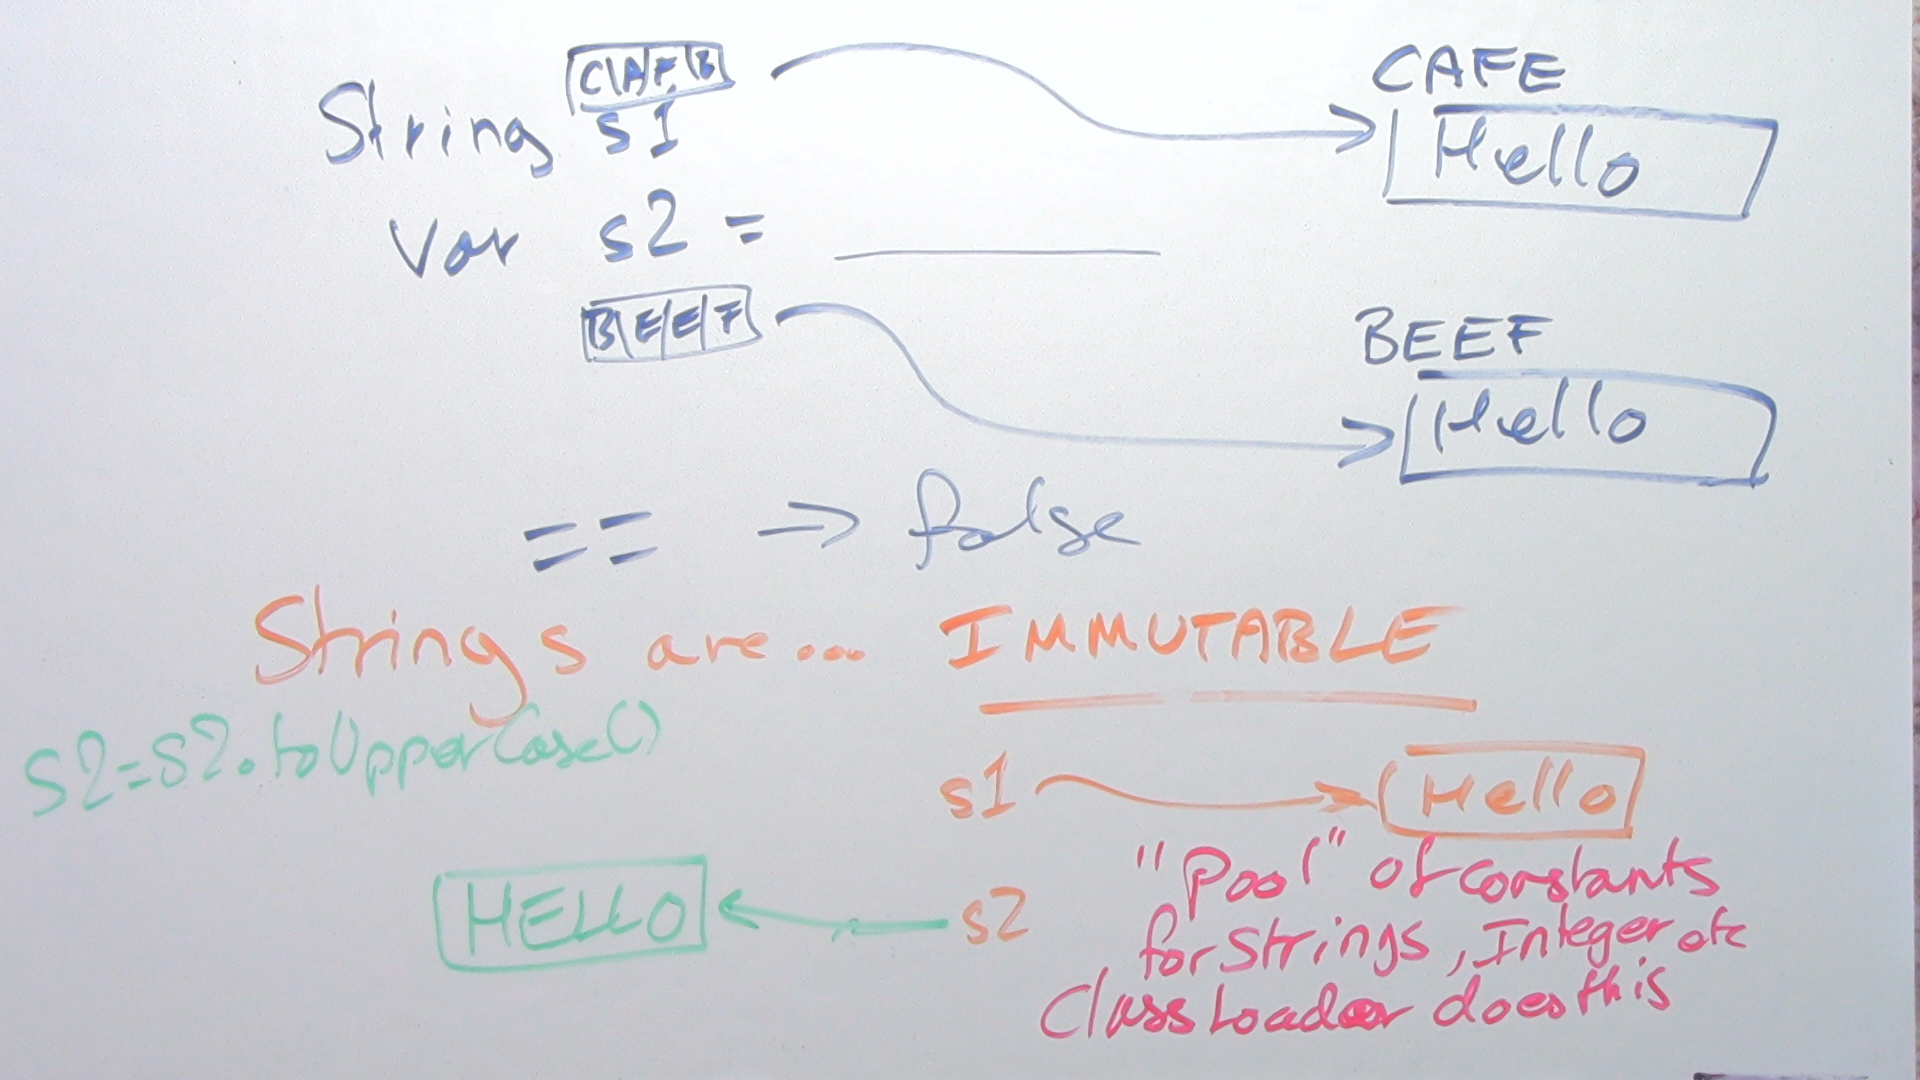 CAFE
CAFE
String s1
Hello
Var s2 =
BEEF
BEEF
Hello
== → false
Strings are... IMMUTABLE
s2=s2.toUpperCase()
s1
Hello
"Pool" of constants
for Strings, Integer etc
Class Loader does this
HELLO
s2